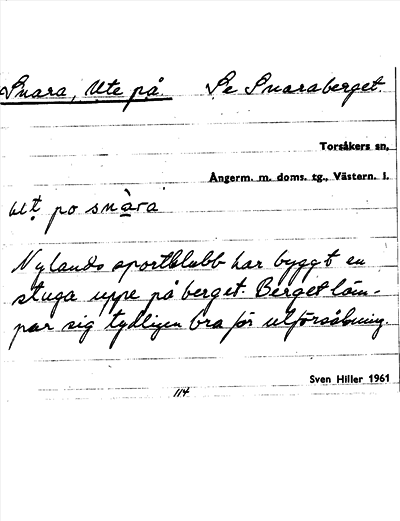 Snara, Ute på Se Snaraberget.
Torsåkers sn,
Ångerm. m. doms. tg., Västern. l.
ut po snàra
Nylands sportklubb har byggt en
stuga uppe på berget. Berget läm-
par sig tydligen bra för utförsåkning.
Sven Hiller 1961
114